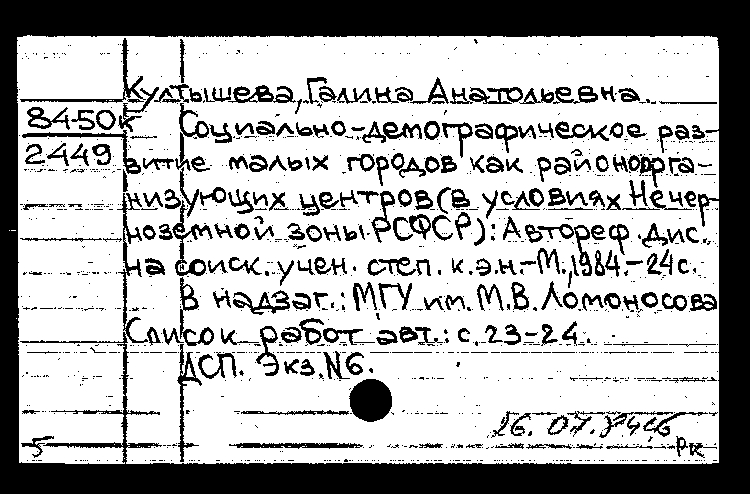 Култышева, Галина Анатольевна.
84-50к Социально-демографическое раз-
2449 витие малых городов как районоорга-
низующих центров (в условиях Нечер-
ноземной зоны РСФСР): Автореф. дис.
на соиск. учен. степ. к.э.н.-М., 1984.-24с.
В надзаг.: МГУ им. М.В. Ломоносова
Список работ авт.: с. 23-24.
ДСП. Экз. N6.
26. 07. 84
5 РК